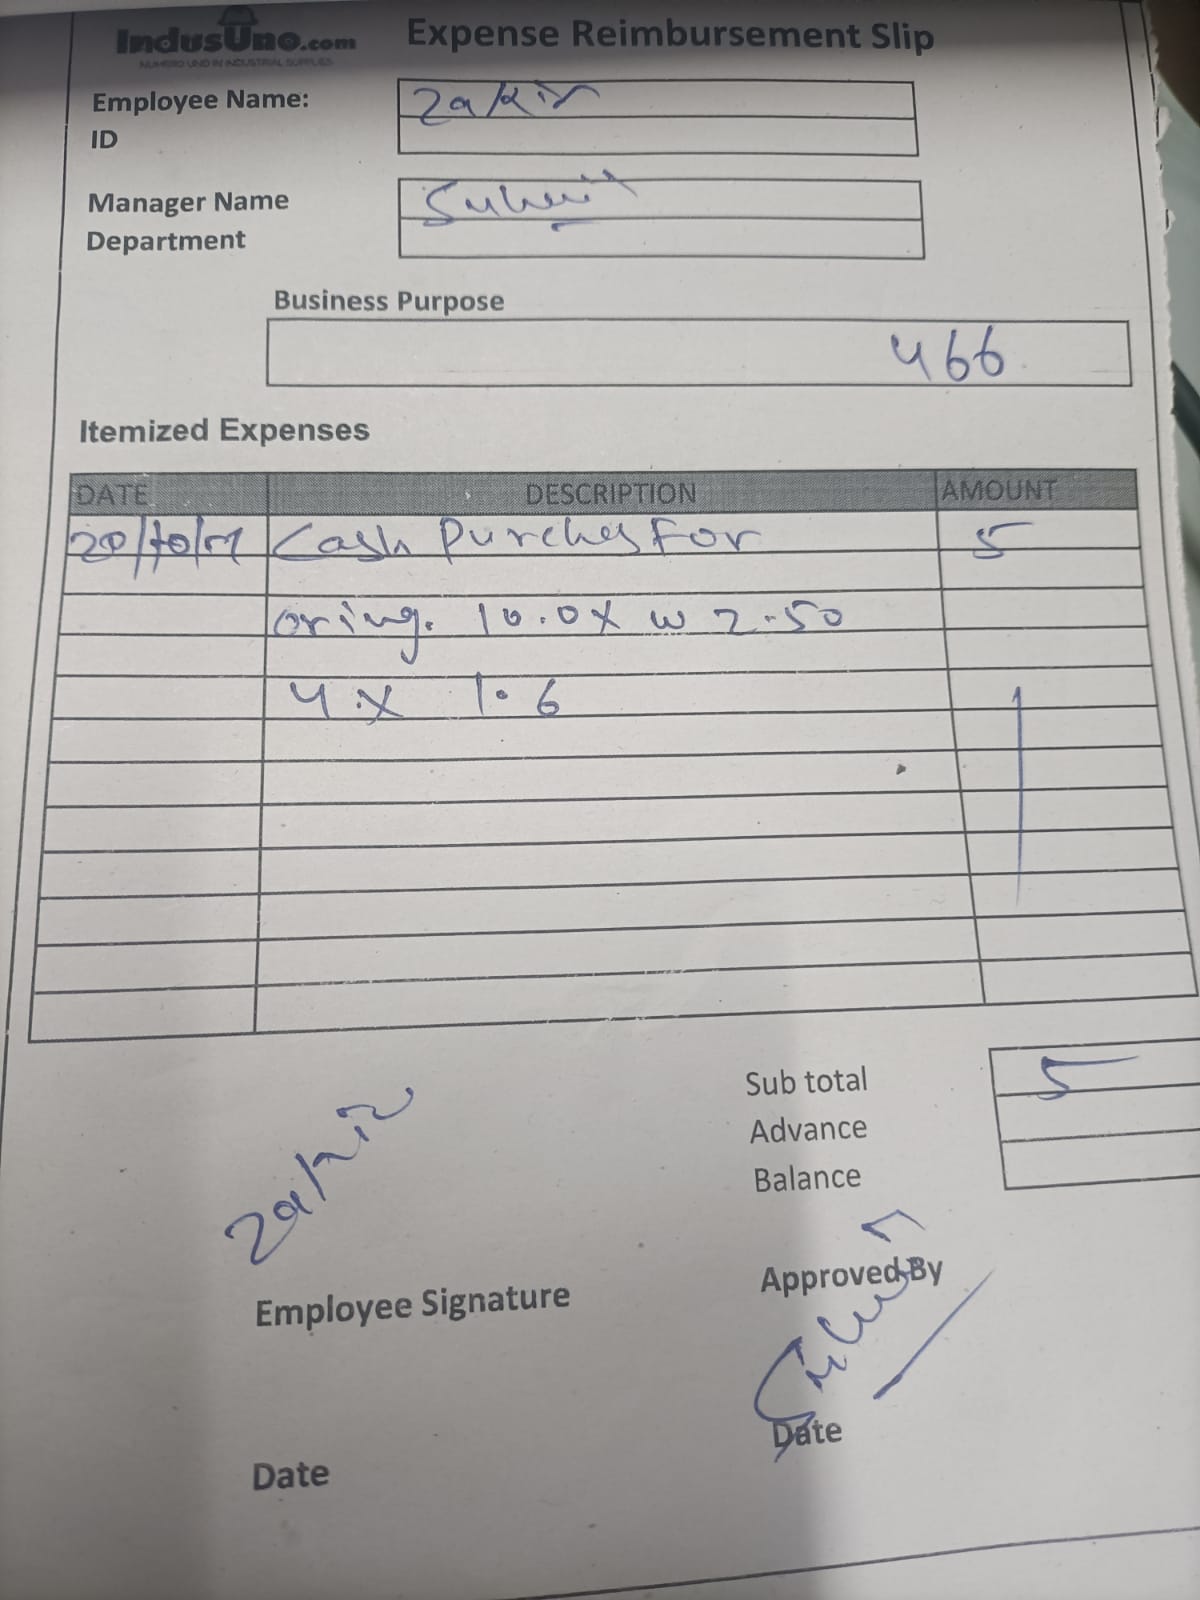 IndusUno.com
NUMERO UNO IN INDUSTRIAL SUPPLIES
Expense Reimbursement Slip
Employee Name: Zakir
ID
Manager Name
Department
Business Purpose
466
Itemized Expenses
DATE DESCRIPTION AMOUNT
Cash Purches For 5
oring. 10.0X w 2.50
4.X 1.6
Sub total 5
Advance
Balance
Zakir
Employee Signature
Approved By
Date
Date